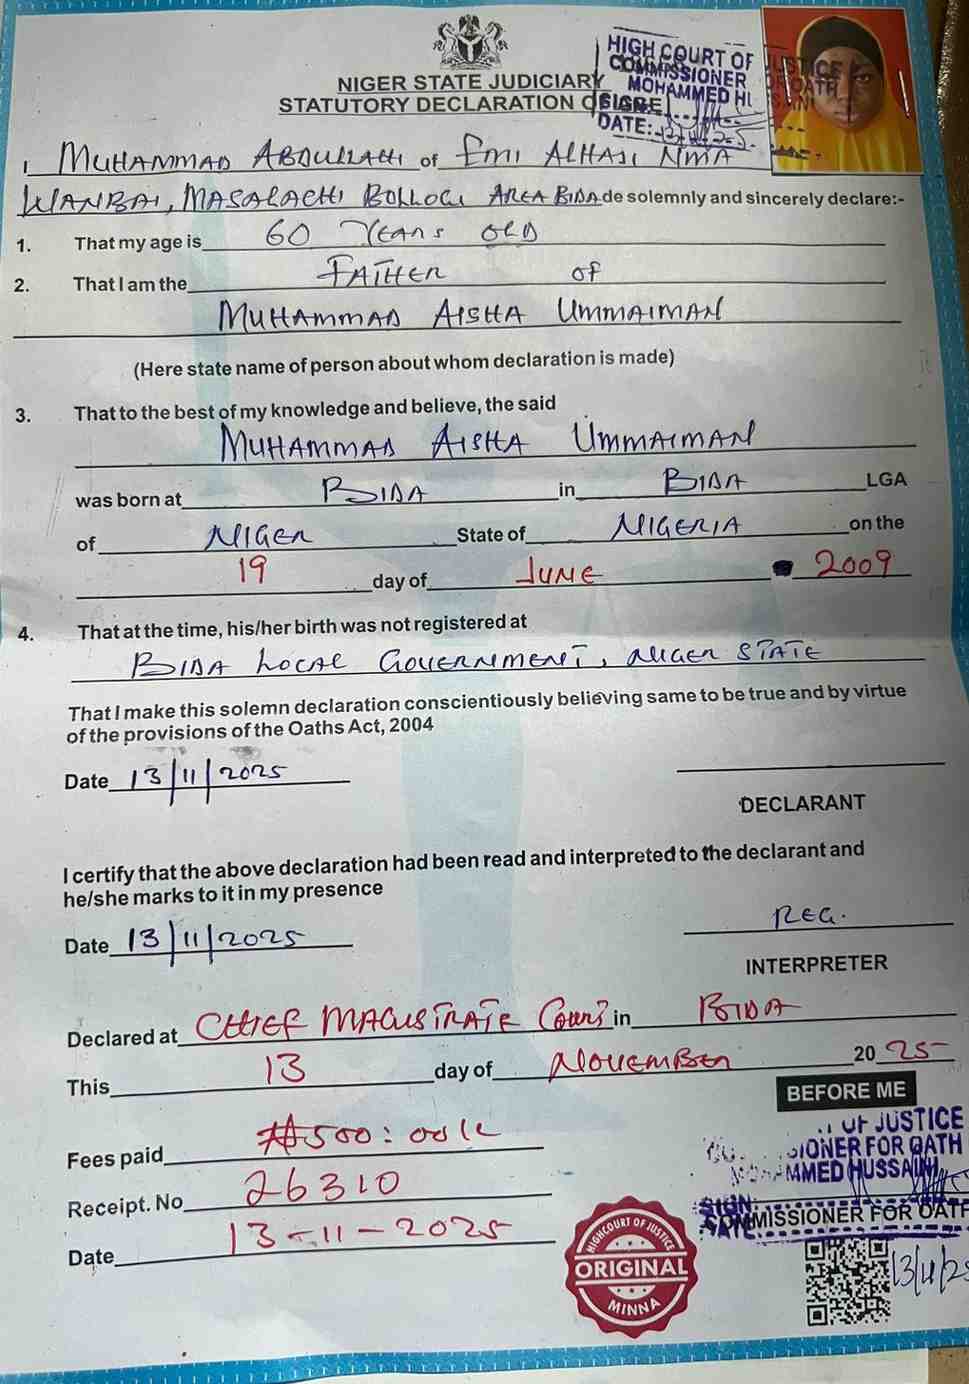 NIGER STATE JUDICIARY
STATUTORY DECLARATION OF AGE
HIGH COURT OF JUSTICE
COMMISSIONER FOR OATH
MOHAMMED HUSSAINI
SIGN:
DATE: 13/11/25
I MUHAMMAD ABDULLAHI of EMI ALHAJI NMA
WANBAI, MASALACHI BOLLOGI AREA BIDA de solemnly and sincerely declare:-
1. That my age is 60 YEARS OLD
2. That I am the FATHER of
MUHAMMAD AISHA UMMAIMAN
(Here state name of person about whom declaration is made)
3. That to the best of my knowledge and believe, the said
MUHAMMAD AISHA UMMAIMAN
was born at BIDA in BIDA LGA
of NIGER State of NIGERIA on the
19 day of JUNE 2009
4. That at the time, his/her birth was not registered at
BIDA LOCAL GOVERNMENT, NIGER STATE
That I make this solemn declaration conscientiously believing same to be true and by virtue
of the provisions of the Oaths Act, 2004
Date 13/11/2025
DECLARANT
I certify that the above declaration had been read and interpreted to the declarant and
he/she marks to it in my presence
REG.
Date 13/11/2025
INTERPRETER
Declared at CHIEF MAGISTRATE COURT in BIDA
This 13 day of NOVEMBER 20 25
BEFORE ME
Fees paid ₦500:00k
OF JUSTICE
SIONER FOR OATH
MOHAMMED HUSSAINI
Receipt. No 26310
SIGN:
COMMISSIONER FOR OATH
DATE:
Date 13-11-2025
13/11/25
HIGHCOURT OF JUSTICE
ORIGINAL
MINNA